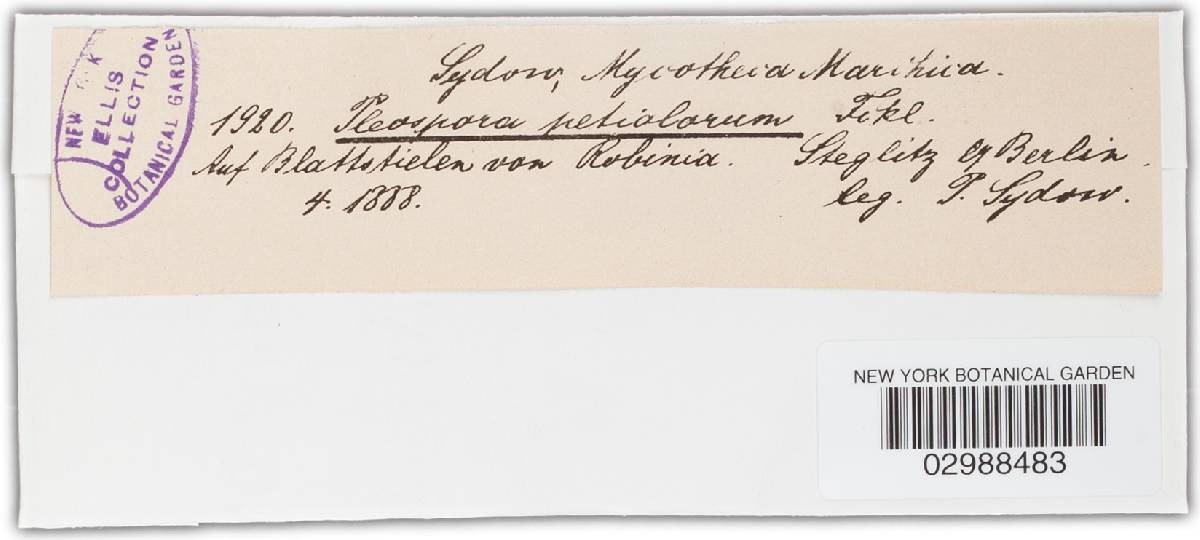 NEW YORK
ELLIS
COLLECTION
BOTANICAL GARDEN
Sydow, Mycotheca Marchica.
1920. Pleospora petiolorum Fckl.
Auf Blattstielen von Robinia. Steglitz b/Berlin.
4. 1888. leg. P. Sydow.
NEW YORK BOTANICAL GARDEN
02988483